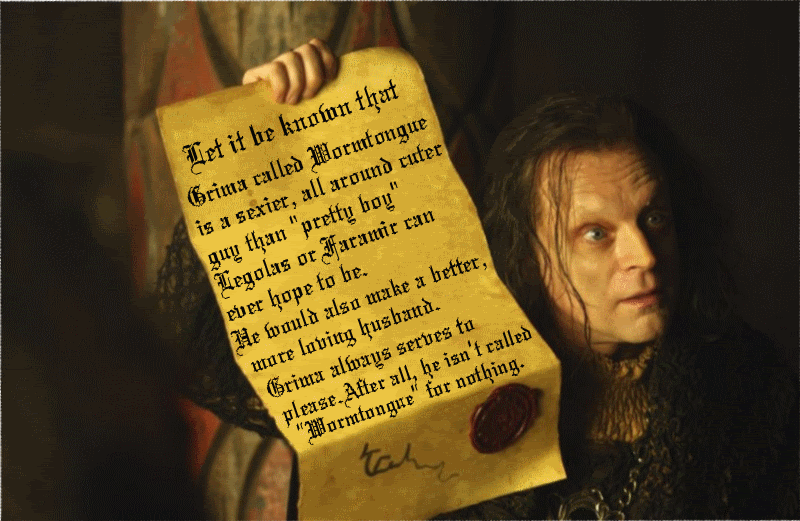 Let it be known that
Grima called Wormtongue
is a sexier, all around cuter
guy than "pretty boy"
Legolas or Faramir can
ever hope to be.
He would also make a better,
more loving husband.
Grima always serves to
please. After all, he isn't called
"Wormtongue" for nothing.